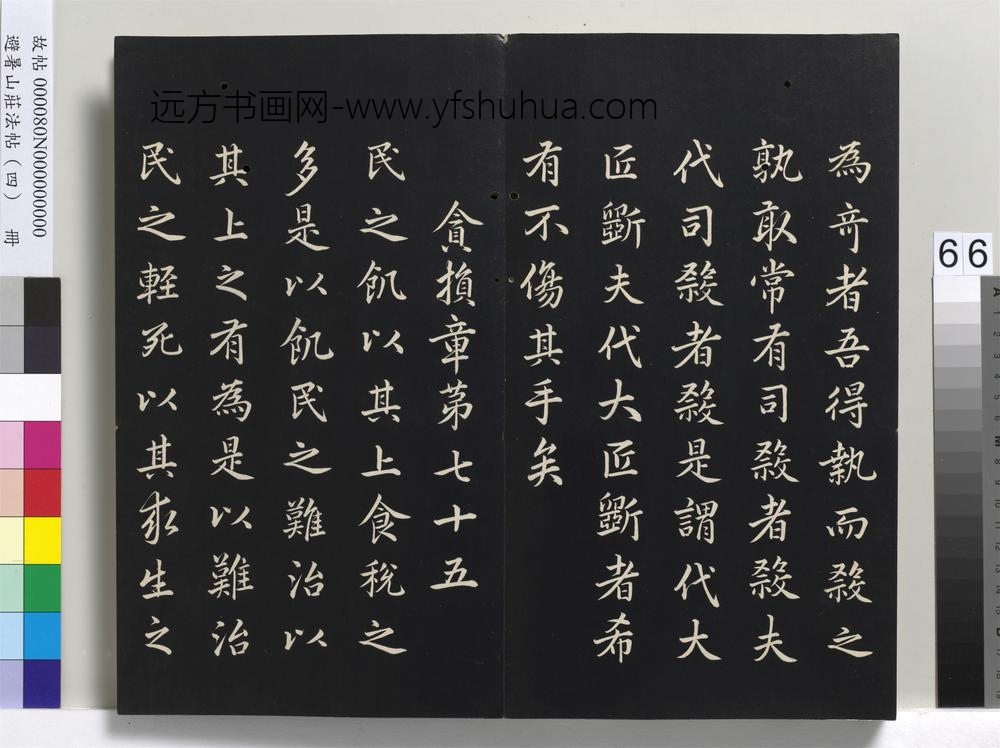 為奇者吾得執而殺之
孰敢常有司殺者殺夫
代司殺者殺是謂代大
匠斲夫代大匠斲者希
有不傷其手矣
貪損章第七十五
民之飢以其上食稅之
多是以飢民之難治以
其上之有為是以難治
民之輕死以其求生之
远方书画网-www.yfshuhua.com
故帖 000080N000000000
避暑山莊法帖（四） 冊
66